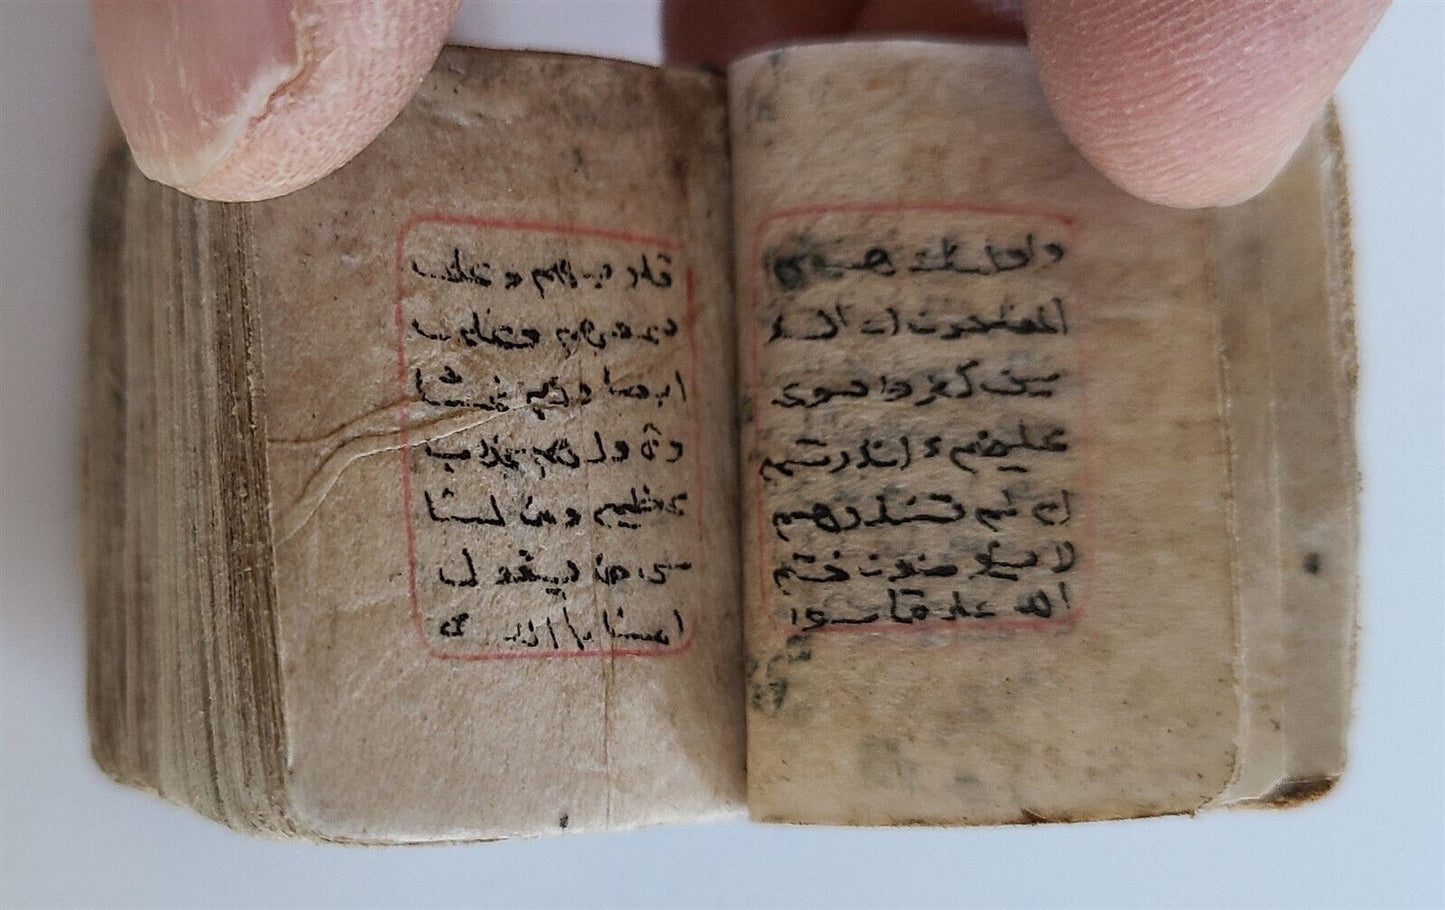 واولئك هم
المفلحون ان الذ
ين كفروا سوى
عليهم ءانذرتهم
ام لم تنذرهم
لا يؤمنون ختم
الله على
قلوبهم وعلى
وعلى
ابصارهم غشا
وة ولهم عذاب
عظيم ومن النا
س من يقول
امنا بالله و